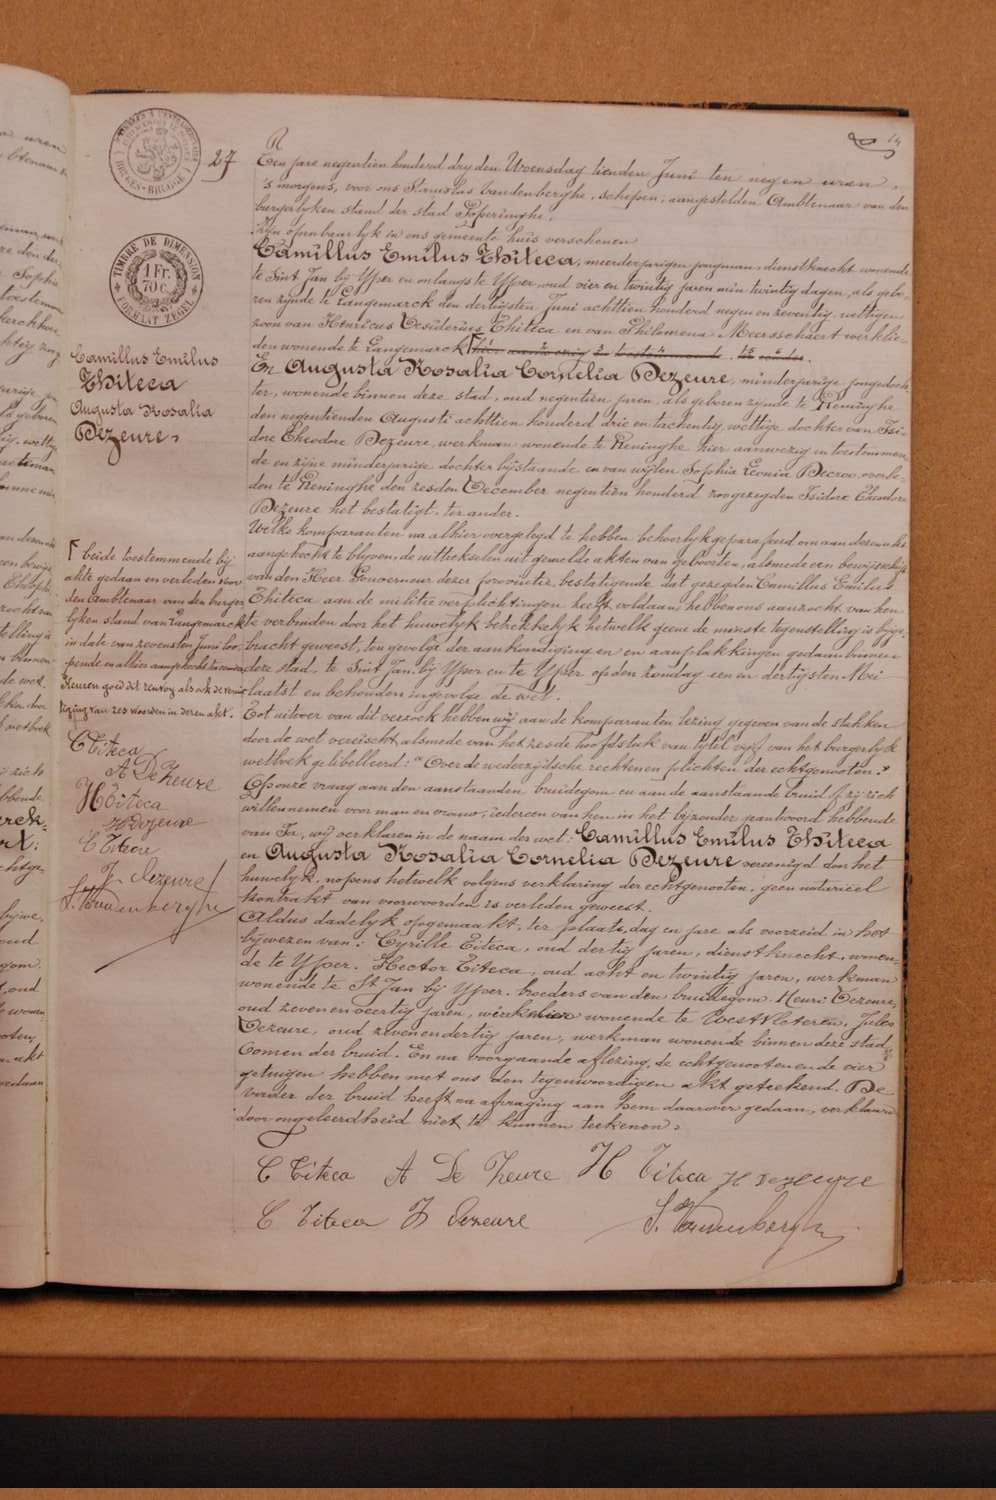 27
14
TIMBRE DE DIMENSION
1 Fr.
70 c.
FORMAAT ZEGEL
Camillus Emilus
Thiteca
Augusta Rosalia
Dezeure.
Een jare negentien honderd dry den Woensdag tienden Juni ten negen uren
's morgens, voor ons Stanislas Vandenberghe, schepen, aangestelden Ambtenaar van den
burgerlyken stand der stad Poperinghe.
Zyn openbaarlyk in ons gemeente huis verschenen
Camillus Emilus Thiteca, meerderjarigen jongman, dienstknecht wonende
te Sint Jan bij Yper en onlangs te Yper, oud vier en twintig jaren min twintig dagen, als gebo-
ren zijnde te Langemarck den dertigsten Juni achttien honderd negen en zeventig, wettigen
zoon van Henricus Desiderius Thiteca en van Philomena Meersschaert werklie-
den wonende te Langemarck
En Augusta Rosalia Cornelia Dezeure, minderjarige jongedoch-
ter, wonende binnen deze stad, oud negentien jaren, als geboren zijnde te Reninghe
den negentienden Augusti achttien honderd drie en tachentig, wettige dochter van Isi-
dore Theodore Dezeure, werkman wonende te Reninghe hier aanwezig en toestemmen-
de en zijne minderjarige dochter bijstaande en van wijlen Sophia Leonia Decroo, overle-
den te Reninghe den zesden December negentien honderd zoo gezegden Isidore Theodore
Dezeure het bestatigt. ter ander.
Welke komparanten na alhier overgelegd te hebben behoorlyk geparafeerd om aan dezen akt
aangehecht te blijven, de uittreksels uit gemelde akten van geboorten, alsmede een bewijsschrift
van den Heer Gouverneur dezer provintie, bestatigende dat gezegden Camillus Emilus
Thiteca aan de militie verplichtingen heeft voldaan, hebben ons aanzocht van hen
te verbinden door het huwelyk betrekkelyk hetwelk geene de minste tegenstelling is bijge-
bracht geweest, ten gevolge der aankondigingen en aanplakkingen gedaan binnen
deze stad, te Sint Jan bij Yper en te Yper op den zondag een en dertigsten Mei
laatst en behouden ingevolge de wet.
Tot uitvoer van dit verzoek hebben wij aan de komparanten lezing gegeven van de stukken
door de wet vereischt, alsmede van het zesde hoofdstuk van tytel vyf van het burgerlyk
wetboek gelibelleerd: "Over de wederzijdsche rechten en plichten der echtgenooten."
Op onze vraag aan den aanstaanden bruidegom en aan de aanstaande bruid of zij zich
willen nemen voor man en vrouw, iedereen van hen in het bijzonder g'antwoord hebbende
van Ja, wij verklaren in de naam der wet: Camillus Emilus Thiteca
en Augusta Rosalia Cornelia Dezeure vereenigd door het
huwelyk. nopens hetwelk volgens verklaring der echtgenooten, geen notarieel
kontrakt van voorwoorden is verleden geweest.
Aldus dadelyk opgemaakt, ter plaats, dag en jare als voorzeid in het
bijwezen van: Cyrille Titeca, oud dertig jaren, dienstknecht, wonen-
de te Yper. Hector Titeca, oud acht en twintig jaren, werkman
wonende te St Jan bij Yper, broeders van den bruidegom. Henri Dezeure,
oud zeven en veertig jaren, werkman wonende te Westvleteren, Jules
Dezeure, oud zeven en dertig jaren, werkman wonende binnen deze stad
Oomen der bruid. En na voorgaande aflezing, de echtgenooten en de vier
getuigen hebben met ons den tegenwoordigen akt geteekend. De
vader der bruid heeft na afvraging aan hem daarover gedaan, verklaard
door ongeleerdheid niet te kunnen teekenen.
C Titeca A De Zeure H Titeca H Dezeure
C Titeca J Dezeure S. Vandenberghe
beide toestemmende bij
akte gedaan en verleden voor
den Ambtenaar van den burger-
lyken stand van Langemarck
in date van zevensten Juni loo-
pende en alhier aangehecht
Keuren goed dit renvoy als ook de vernie-
tiging van zes woorden in dezen akt.
C Titeca
A De Zeure
H Titeca
H Dezeure
C Titeca
J Dezeure
S. Vandenberghe